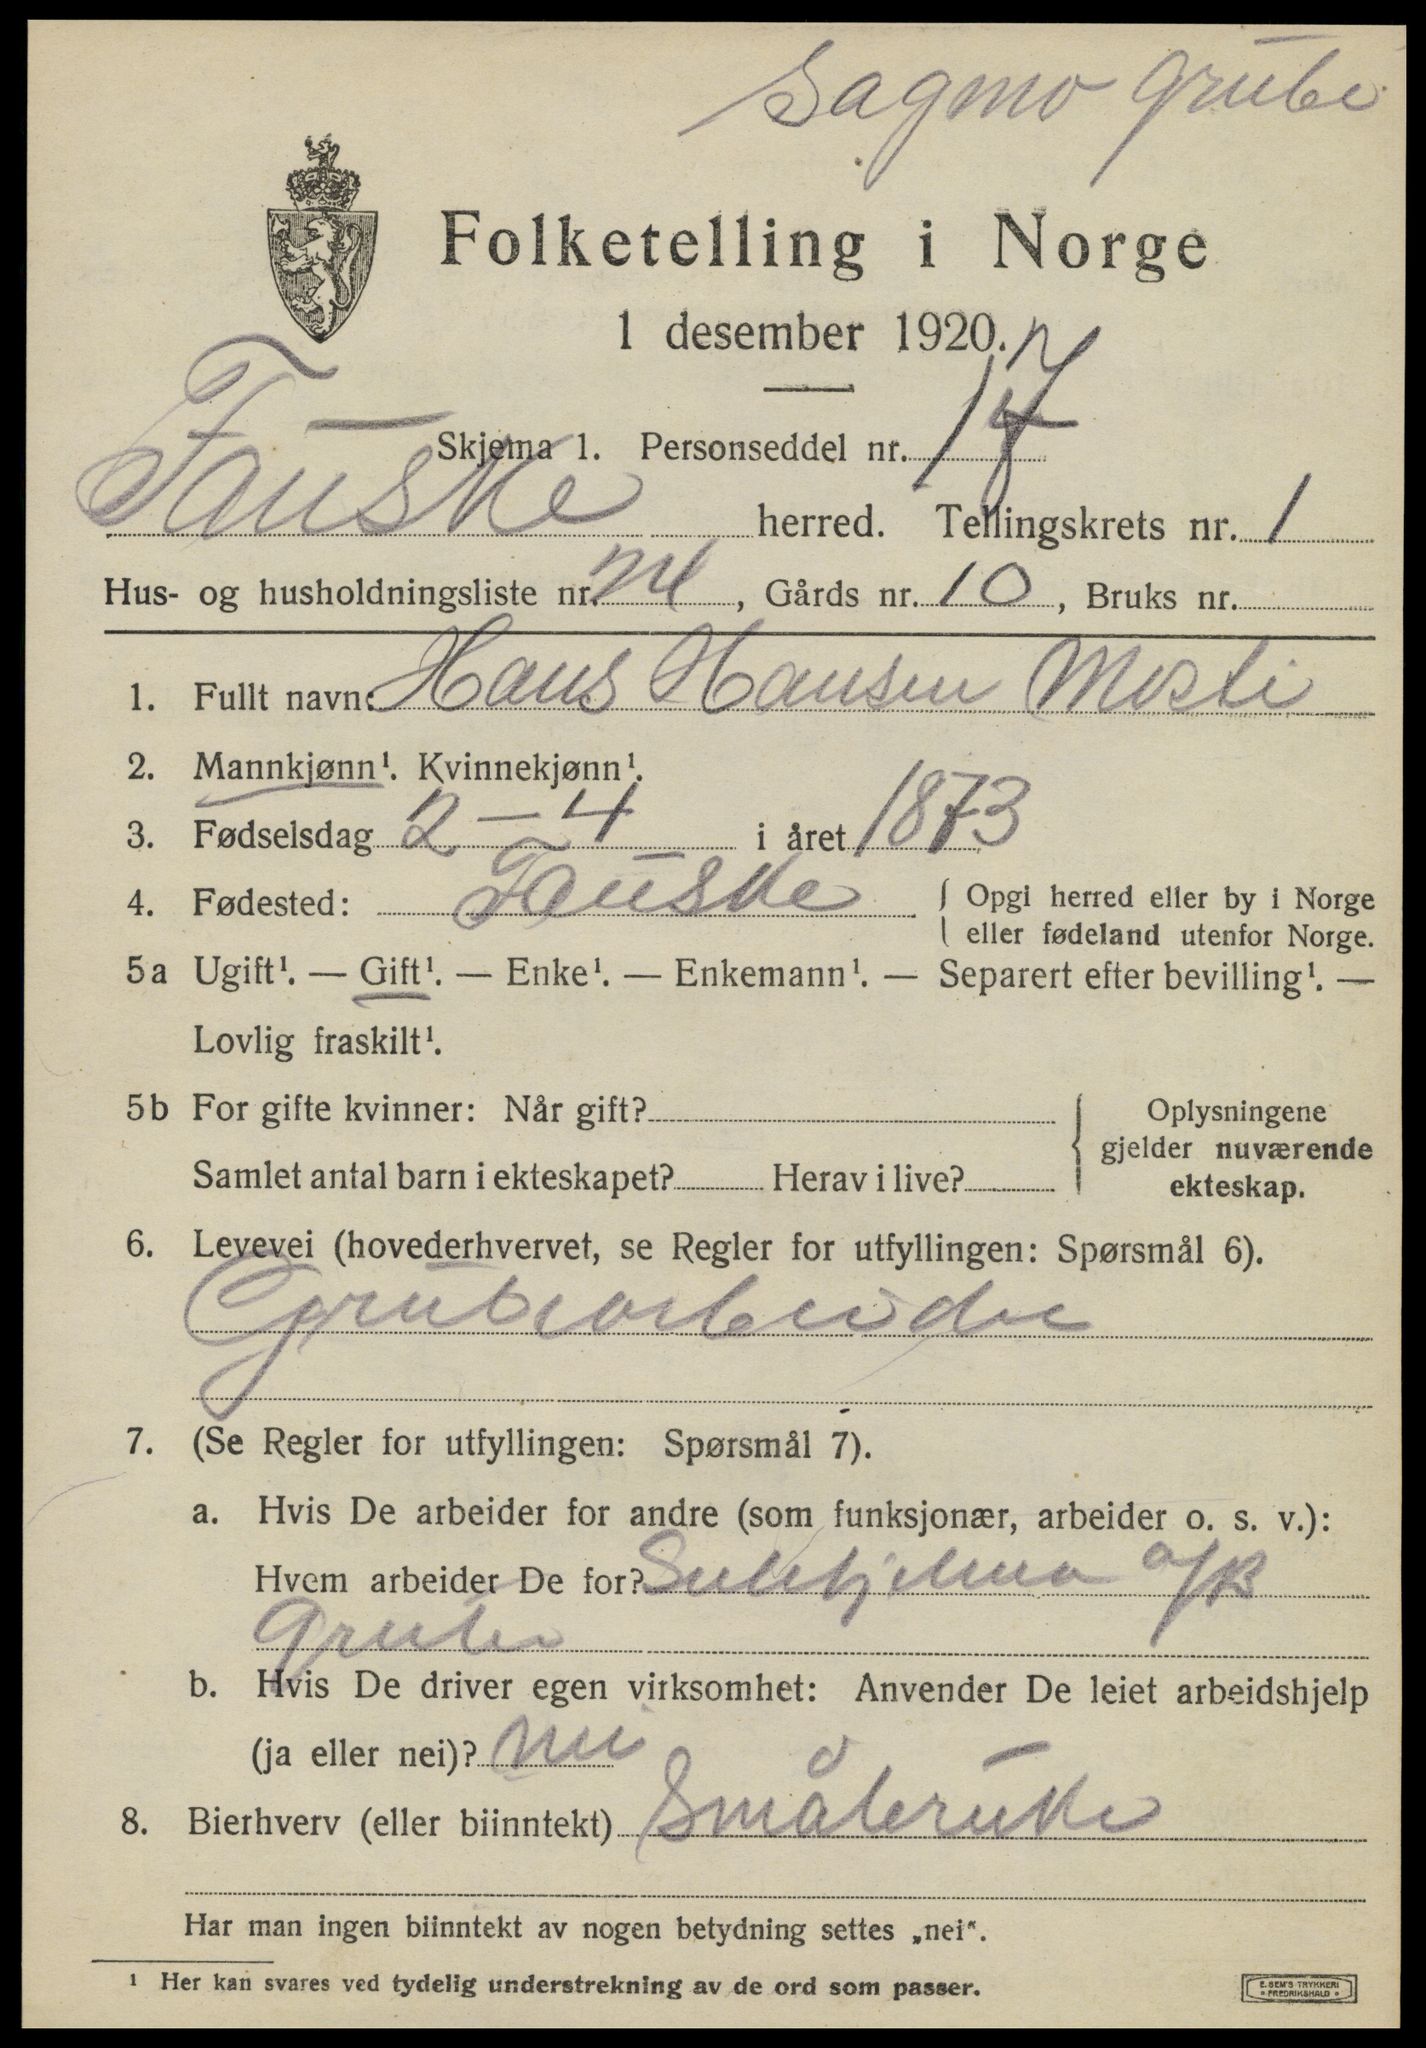 Sagmo grube
Folketelling i Norge
1 desember 1920.
Skjema 1. Personseddel nr. 17
Fauske herred. Tellingskrets nr. 1
Hus- og husholdningsliste nr. , Gårds nr. 10, Bruks nr.
1. Fullt navn: Hans Hansen Mosti
2. Mannkjønn¹. Kvinnekjønn¹.
3. Fødselsdag 2 – 4 i året 1873
4. Fødested: Fauske { Opgi herred eller by i Norge
eller fødeland utenfor Norge.
5a Ugift¹. — Gift¹. — Enke¹. — Enkemann¹. — Separert efter bevilling¹. —
Lovlig fraskilt¹.
5b For gifte kvinner: Når gift?
Samlet antal barn i ekteskapet? Herav i live?
Oplysningene
gjelder nuværende
ekteskap.
6. Levevei (hovederhvervet, se Regler for utfyllingen: Spørsmål 6).
Grubearbeider
7. (Se Regler for utfyllingen: Spørsmål 7).
a. Hvis De arbeider for andre (som funksjonær, arbeider o. s. v.):
Hvem arbeider De for? Sulitjelma a/B
Grube
b. Hvis De driver egen virksomhet: Anvender De leiet arbeidshjelp
(ja eller nei)? nei
8. Bierhverv (eller biinntekt) Småbruker
Har man ingen biinntekt av nogen betydning settes „nei".
¹ Her kan svares ved tydelig understrekning av de ord som passer.
E. SEM'S TRYKKERI
FREDRIKSHALD